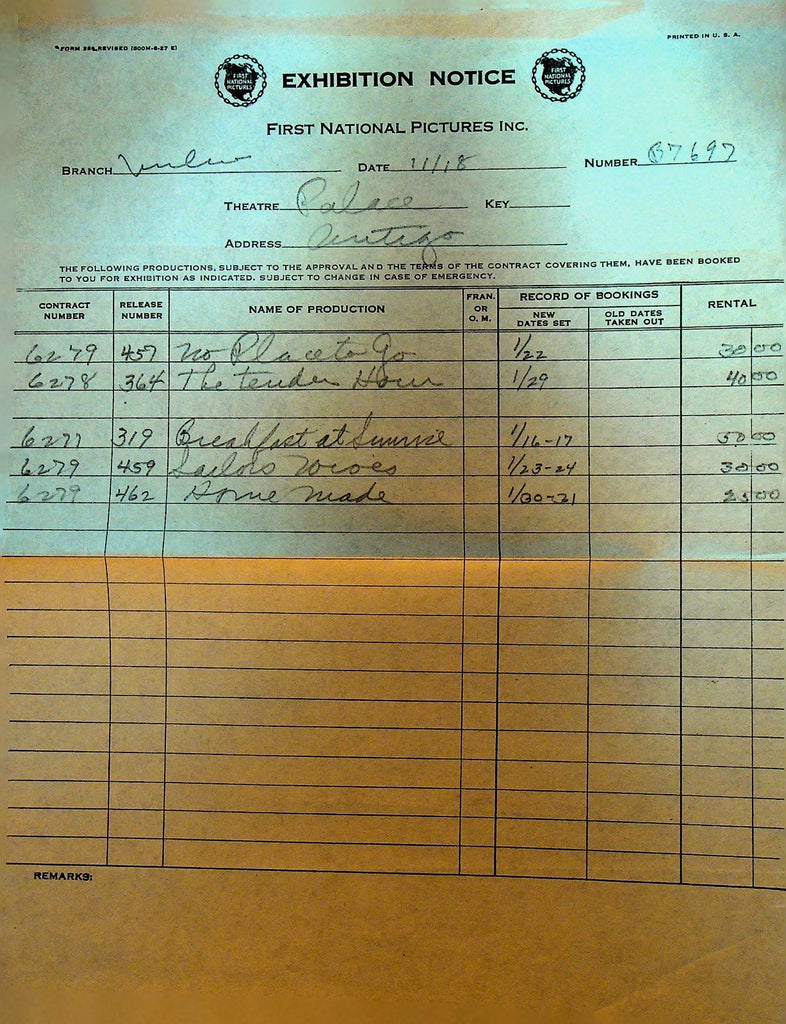 FORM 386, REVISED (500M-6-27 E)
PRINTED IN U. S. A.
FIRST NATIONAL PICTURES EXHIBITION NOTICE FIRST NATIONAL PICTURES
FIRST NATIONAL PICTURES INC.
BRANCH DATE 11/18 NUMBER B7697
THEATRE Palace KEY
ADDRESS Antigo
THE FOLLOWING PRODUCTIONS, SUBJECT TO THE APPROVAL AND THE TERMS OF THE CONTRACT COVERING THEM, HAVE BEEN BOOKED
TO YOU FOR EXHIBITION AS INDICATED. SUBJECT TO CHANGE IN CASE OF EMERGENCY.
CONTRACT NUMBER RELEASE NUMBER NAME OF PRODUCTION FRAN. OR O. M. RECORD OF BOOKINGS NEW DATES SET OLD DATES TAKEN OUT RENTAL
6279 457 No Place to Go 1/22 30 00
6278 364 The tender Hour 1/29 40 00
6277 319 Breakfast at Sunrise 1/16-17 50 00
6279 459 Sailors Wives 1/23-24 30 00
6279 462 Home made 1/30-31 25 00
REMARKS: